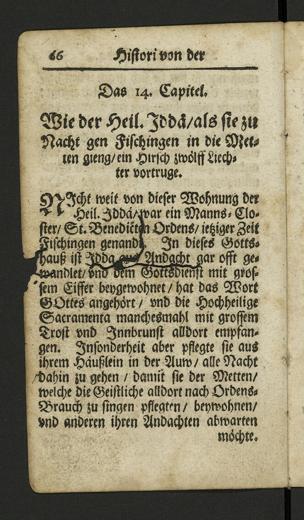 66 Histori von der
Das 14. Capitel.
Wie der Heil. Iddâ/als sie zu
Nacht gen Fischingen in die Met-
ten gieng/ein Hirsch zwölff Liech-
ter vortruge.
NIcht weit von dieser Wohnung der
Heil. Iddâ/war ein Manns-Clo-
ster/ St. Benedicten Ordens/ ietziger Zeit
Fischingen genandt. In dieses Gotts-
hauß ist Idda aus Andacht gar offt ge-
wandlet/vnd dem Gottsdienst mit gros-
sem Eiffer beygewohnet/hat das Wort
GOttes angehört/ vnd die Hochheilige
Sacramenta manchesmahl mit grossem
Trost vnd Innbrunst alldort empfan-
gen. Insonderheit aber pflegte sie aus
ihrem Häußlein in der Auw/ alle Nacht
dahin zu gehen/ damit sie der Metten/
welche die Geistliche alldort nach Ordens-
Brauch zu singen pflegten/ beywohnen/
vnd anderen ihren Andachten abwarten
möchte.